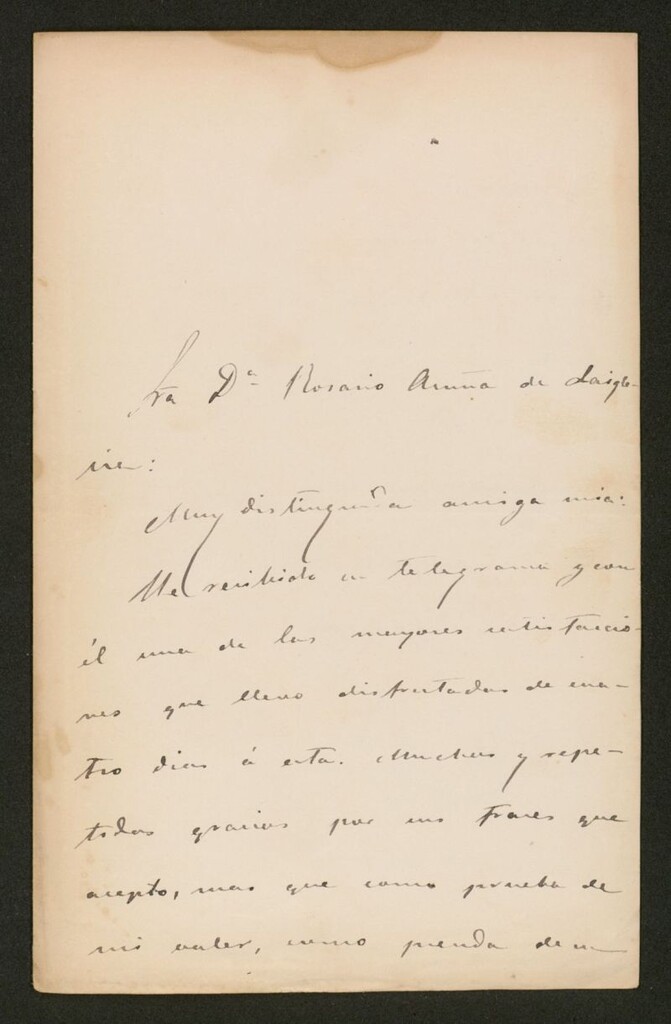 Sra Dª Rosario Acuña de Laigle-
sia:
Muy distinguida amiga mia:
He recibido su telegrama y con
él una de las mayores satisfaccio-
nes que llevo disfrutadas de cua-
tro dias á esta. Muchas y repe-
tidas gracias por sus frases que
acepto, mas que como prueba de
mi valer, como prenda de su